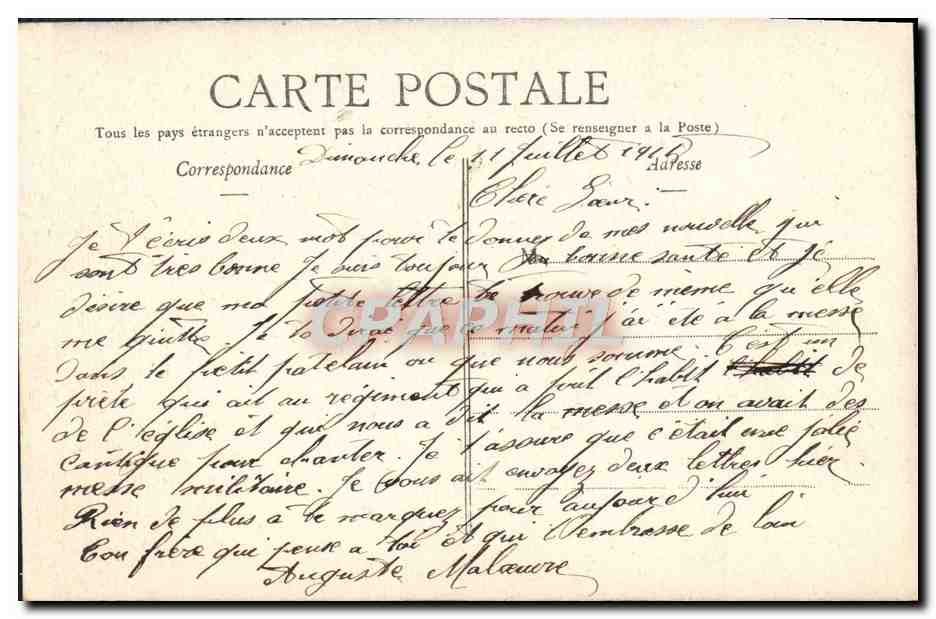 CARTE POSTALE
Tous les pays étrangers n'acceptent pas la correspondance au recto (Se renseigner a la Poste)
Correspondance
Adresse
Dimanche le 11 Juillet
Chère Sœur.
Je t'écris deux mot pour te donner de mes nouvelle qui
sont très bonne Je suis toujour bonne santé et je
désire que ma petite lettre te trouve de même qu'elle
me quitte. te dirai que ce matin j'ai été à la messe
dans le petit patelain ou que nous somme. C'est un
prète qui ait au régiment qui a l'habit de
de l'église et qui nous a dit la messe et on avait des
cantique pour chanter. Je t'assure que c'était une jolie
messe militaire. Je vous ait envoyez deux lettres hier.
Rien de plus a te marquez pour aujourd'hui
Ton frère qui pense a toi et qui t'embrasse de loin
Auguste Malœuvre
CPAPHIL